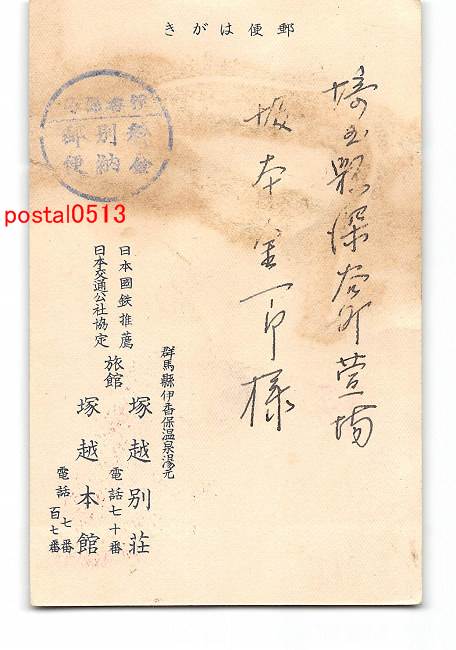 郵便はがき
埼玉縣深谷町萱場
坂本金一郎様
料金
別納
郵便
postal0513
群馬縣伊香保温泉湯元
塚越別荘
電話七十番
塚越本館
電話 七番
百七番
旅館
日本國鉄推薦
日本交通公社協定